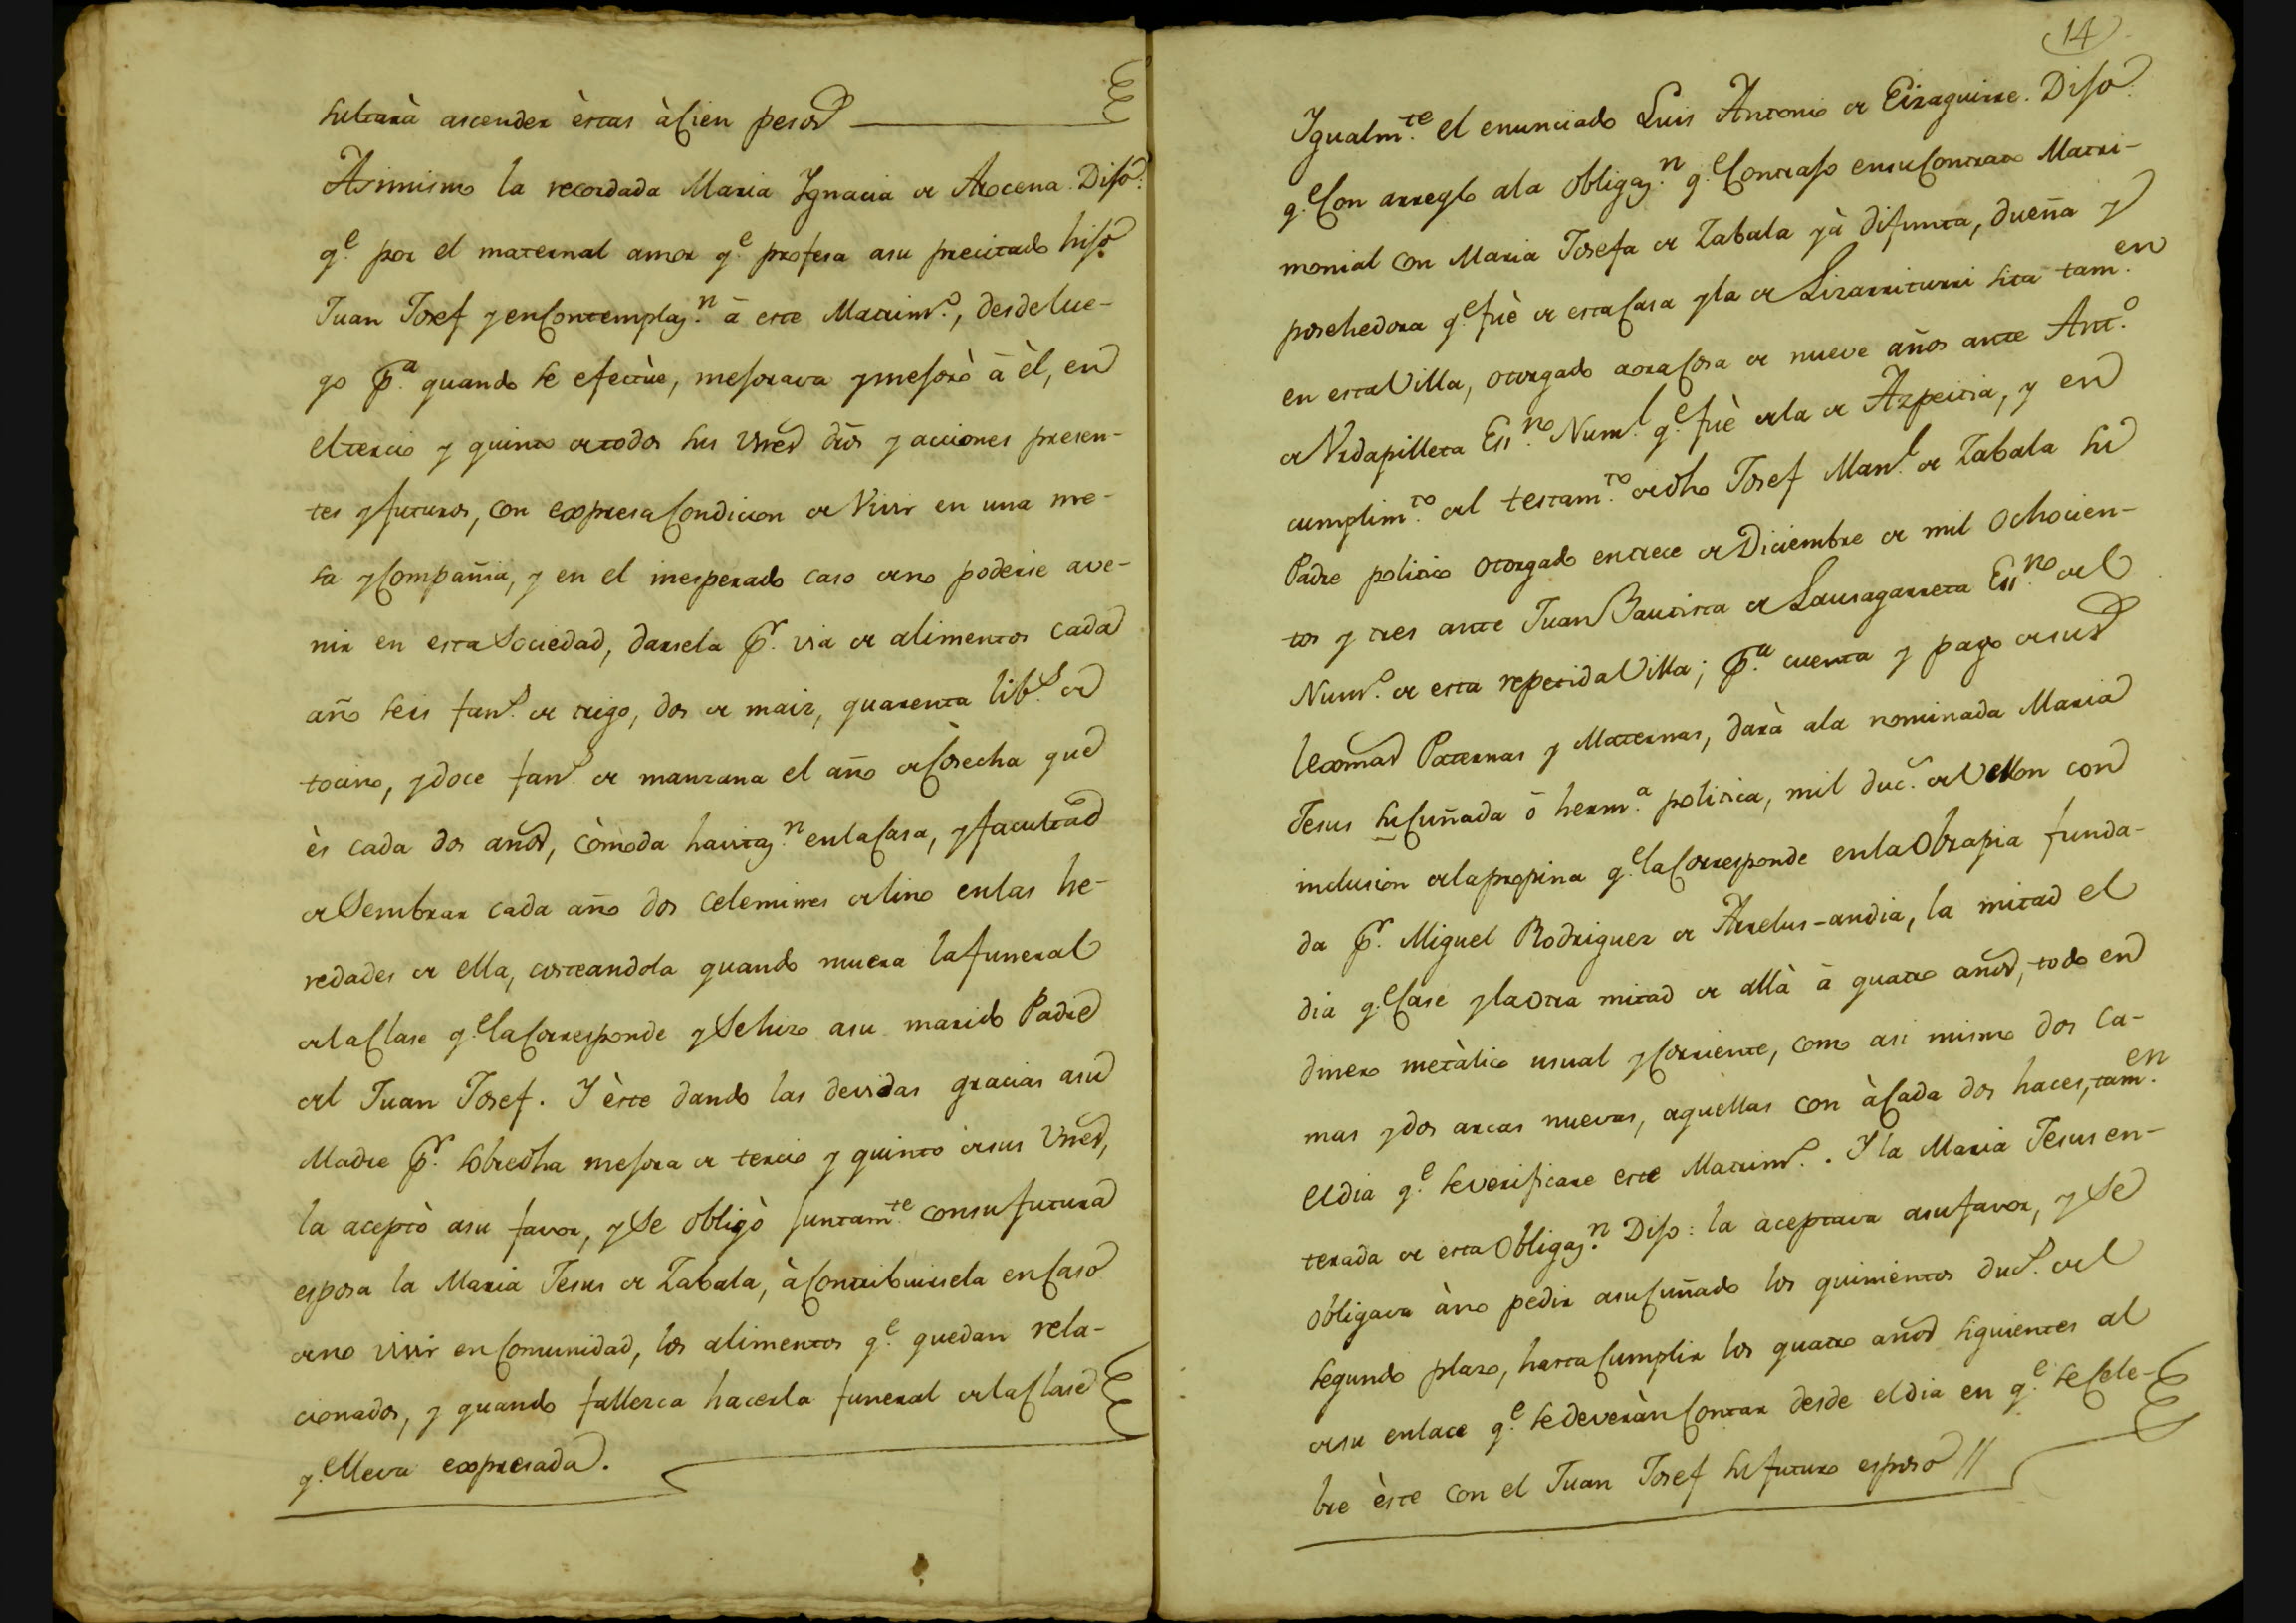 sultarà ascender èstas à Cien pesos
Asimismo la recordada Maria Ygnacia de Arocena. Dijo:
q.e por el maternal amor q.e profesa asu precitado hijo
Juan Josef y en Contemplaz.n â este Matrim.o, desdelue-
go p.a quando se efectùe, mejorava y mejorò â èl, en
el tercio y quinto de todos sus vnes dros y acciones presen-
tes y futuros, con expresa Condicion de Vivir en una me-
sa y Compañia, y en el inesperado caso de no poderse ave-
nir en esta Sociedad, darsela p.r via de alimentos cada
año seis fan.s de trigo, dos de maiz, quarenta lib.s de
tocino, y doce fan.s de manzana el año de Cosecha que
ès cada dos años, còmoda havitaz.n en la Casa, y facultad
de Sembrar cada año dos Celemines de lino en las he-
redades de ella, costeandola quando muera la funeral
de la Clase q.e la Corresponde y Se hizo asu marido Padre
del Juan Josef. Y èste dando las devidas gracias asu
Madre p.r sobredha mejora de tercio y quinto de sus Vnes,
la aceptò asu favor, y Se obligò juntam.te consu futura
esposa la Maria Jesus de Zabala, à Contribuirsela en Caso
de no vivir en Comunidad, los alimentos q.e quedan rela-
cionados, y quando fallezca hacerla funeral de la Clase
q.e lleva expresada.
14
Ygualm.te el enunciado Luis Antonio de Eizaguirre. Dijo:
q.e Con arreglo ala obligaz.n q.e Contrajo ensu Contrato Matri-
monial con Maria Josefa de Zabala yà difunta, dueña y
posehedora q.e fuè de esta Casa y la de Lizarriturri sita tam.en
en esta Villa, otorgado aora Cosa de nueve años ante Ant.o
de Vrdapilleta Ess.no Num.l q.e fuè de la de Azpeitia, y en
cumplim.to del testam.to de dho Josef Man.l de Zabala su
Padre politico otorgado en trece de Diciembre de mil ochocien-
tos y tres ante Juan Bautista de Lausagarreta Ess.no del
Num.o de esta repetida Villa; p.a cuenta y pago de sus
lexmas Paternas y Maternas, darà ala nominada Maria
Jesus su Cuñada ô herm.a politica, mil duc.s de Vellon con
inclusion de la propina q.e la Corresponde en la Obrapia funda-
da p.r Miguel Rodriguez de Arrelus-andia, la mitad el
dia q.e Case y la otra mitad de allà â quatro años, todo en
dinero metàlico usual y Corriente, como asi mismo dos Ca-
mas y dos arcas nuevas, aquellas con à Cada dos haces, tam.en
el dia q.e se verificare este Matrim.o. Y la Maria Jesus en-
terada de esta Obligaz.n Dijo: la aceptava asu favor, y Se
obligava àno pedir asu Cuñado los quinientos duc.s del
segundo plazo, hasta Cumplir los quatro años siguientes al
de su enlace q.e se deveràn Contar desde el dia en q.e se Cele-
bre èste con el Juan Josef su futuro esposo //